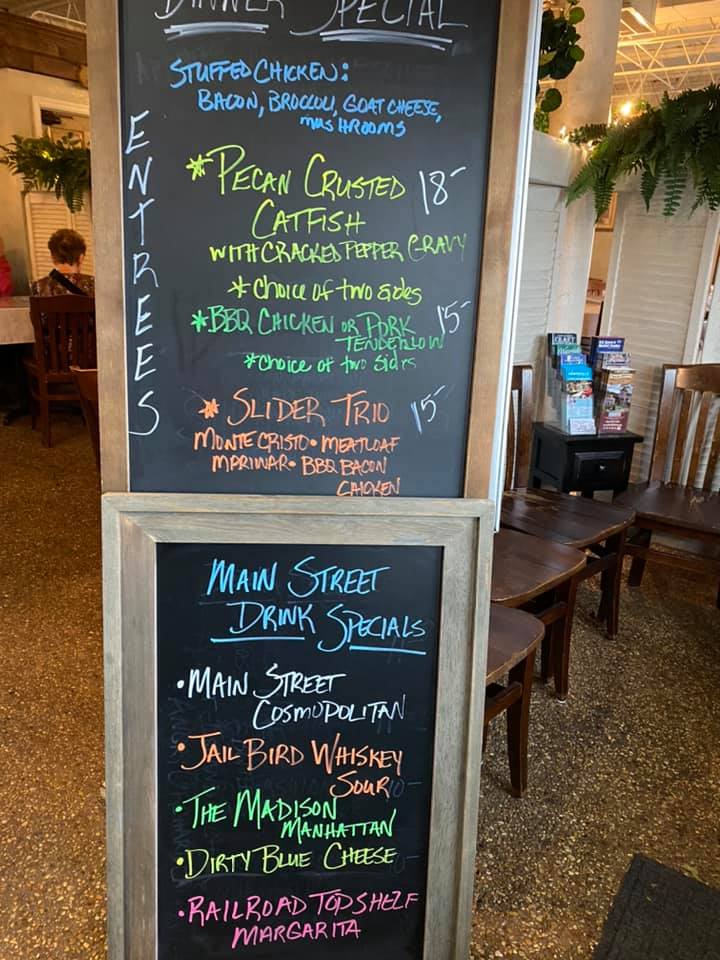 DINNER SPECIAL
STUFFED CHICKEN:
BACON, BROCCOLI, GOAT CHEESE,
MUSHROOMS
ENTREES
*PECAN CRUSTED 18-
CATFISH
WITH CRACKED PEPPER GRAVY
* choice of two sides
*BBQ CHICKEN OR PORK 15-
TENDERLOIN
*choice of two sides
* SLIDER TRIO 15-
MONTE CRISTO • MEATLOAF
MPRIWAR • BBQ BACON
CHICKEN
MAIN STREET
DRINK SPECIALS
• MAIN STREET
COSMOPOLITAN
• JAIL BIRD WHISKEY
SOUR 10-
• THE MADISON
MANHATTAN
• DIRTY BLUE CHEESE
• RAILROAD TOP SHELF
MARGARITA